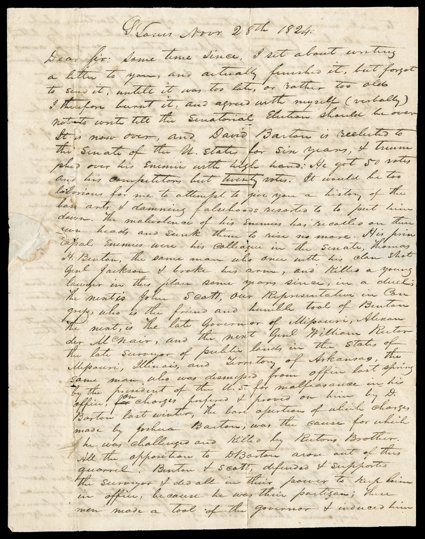 St Louis Novr 28th 1824.
Dear Sir: Some time since, I set about writing
a letter to you, and actually finished it, but forgot
to send it, untill it was too late, or rather too old
I therefore burnt it, and agreed with myself (verbally)
not to write till the Senatorial Election should be over
It is now over, and David Barton is reelected to
the Senate of the U. States for Six years, & trium
phed over his Enemies with high hand: He got 50 votes
and his competitors but twenty votes. It would be too
laborious for me to attempt to give you a history of the
base arts, & damning falsehoods resorted to to put him
down. The malevolence of his Enemies has recoiled on their
own heads and sunk them to rise no more. His prin
cipal Enemies were his colleague in the Senate, Thomas
H Benton, the same man who once with his clan shot
Genl Jackson & broke his arm, and killed a young
lawyer in this place some years since, in a duel;
the next is John Scott, Our Representative in Con
gress, who is the friend and humble tool of Benton
the next, is the late Governor of Missouri, Alexan
der McNair, and the next Genl William Rector
the late Surveyor of public lands in the States of
Missouri, Illinois, and Territory of Arkansas, the
same man who was dismissed from office last spring
by the president of the U.S for malfeasance in his
office, on charges prefered & proved on him by D.
Barton last winter, the bare assertion of which charges
made by Joshua Barton, was the cause for which
he was challenged and killed by Rectors Brother.
All the opposition to D Barton arose out of this
quarrel – Benton & Scott, defended & supported
the Surveyor & did all in their power to keep him
in office, because he was their partizan; these
men made a tool of the governor & induced him